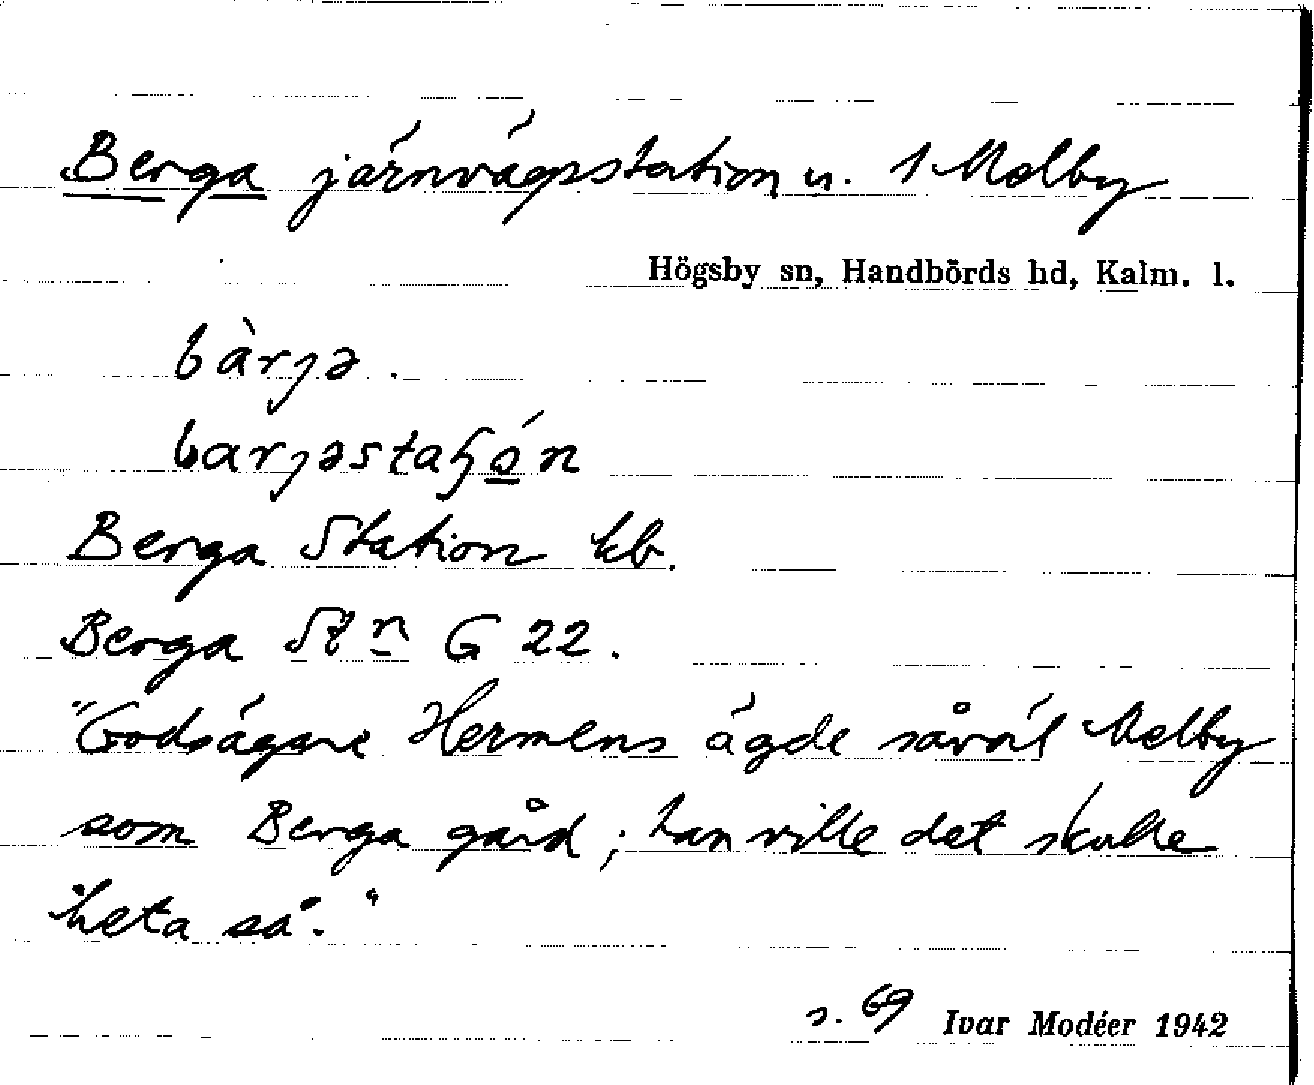 Berga järnvägsstation u. 1 Mölby
Högsby sn, Handbörds hd, Kalm. l.
bàrjə.
barjəstaʃón
Berga Station kb.
Berga Stn G 22.
"Godsägare Hermens ägde såväl Mölby
som Berga gård; han ville det skulle
heta så."
s. 69 Ivar Modéer 1942